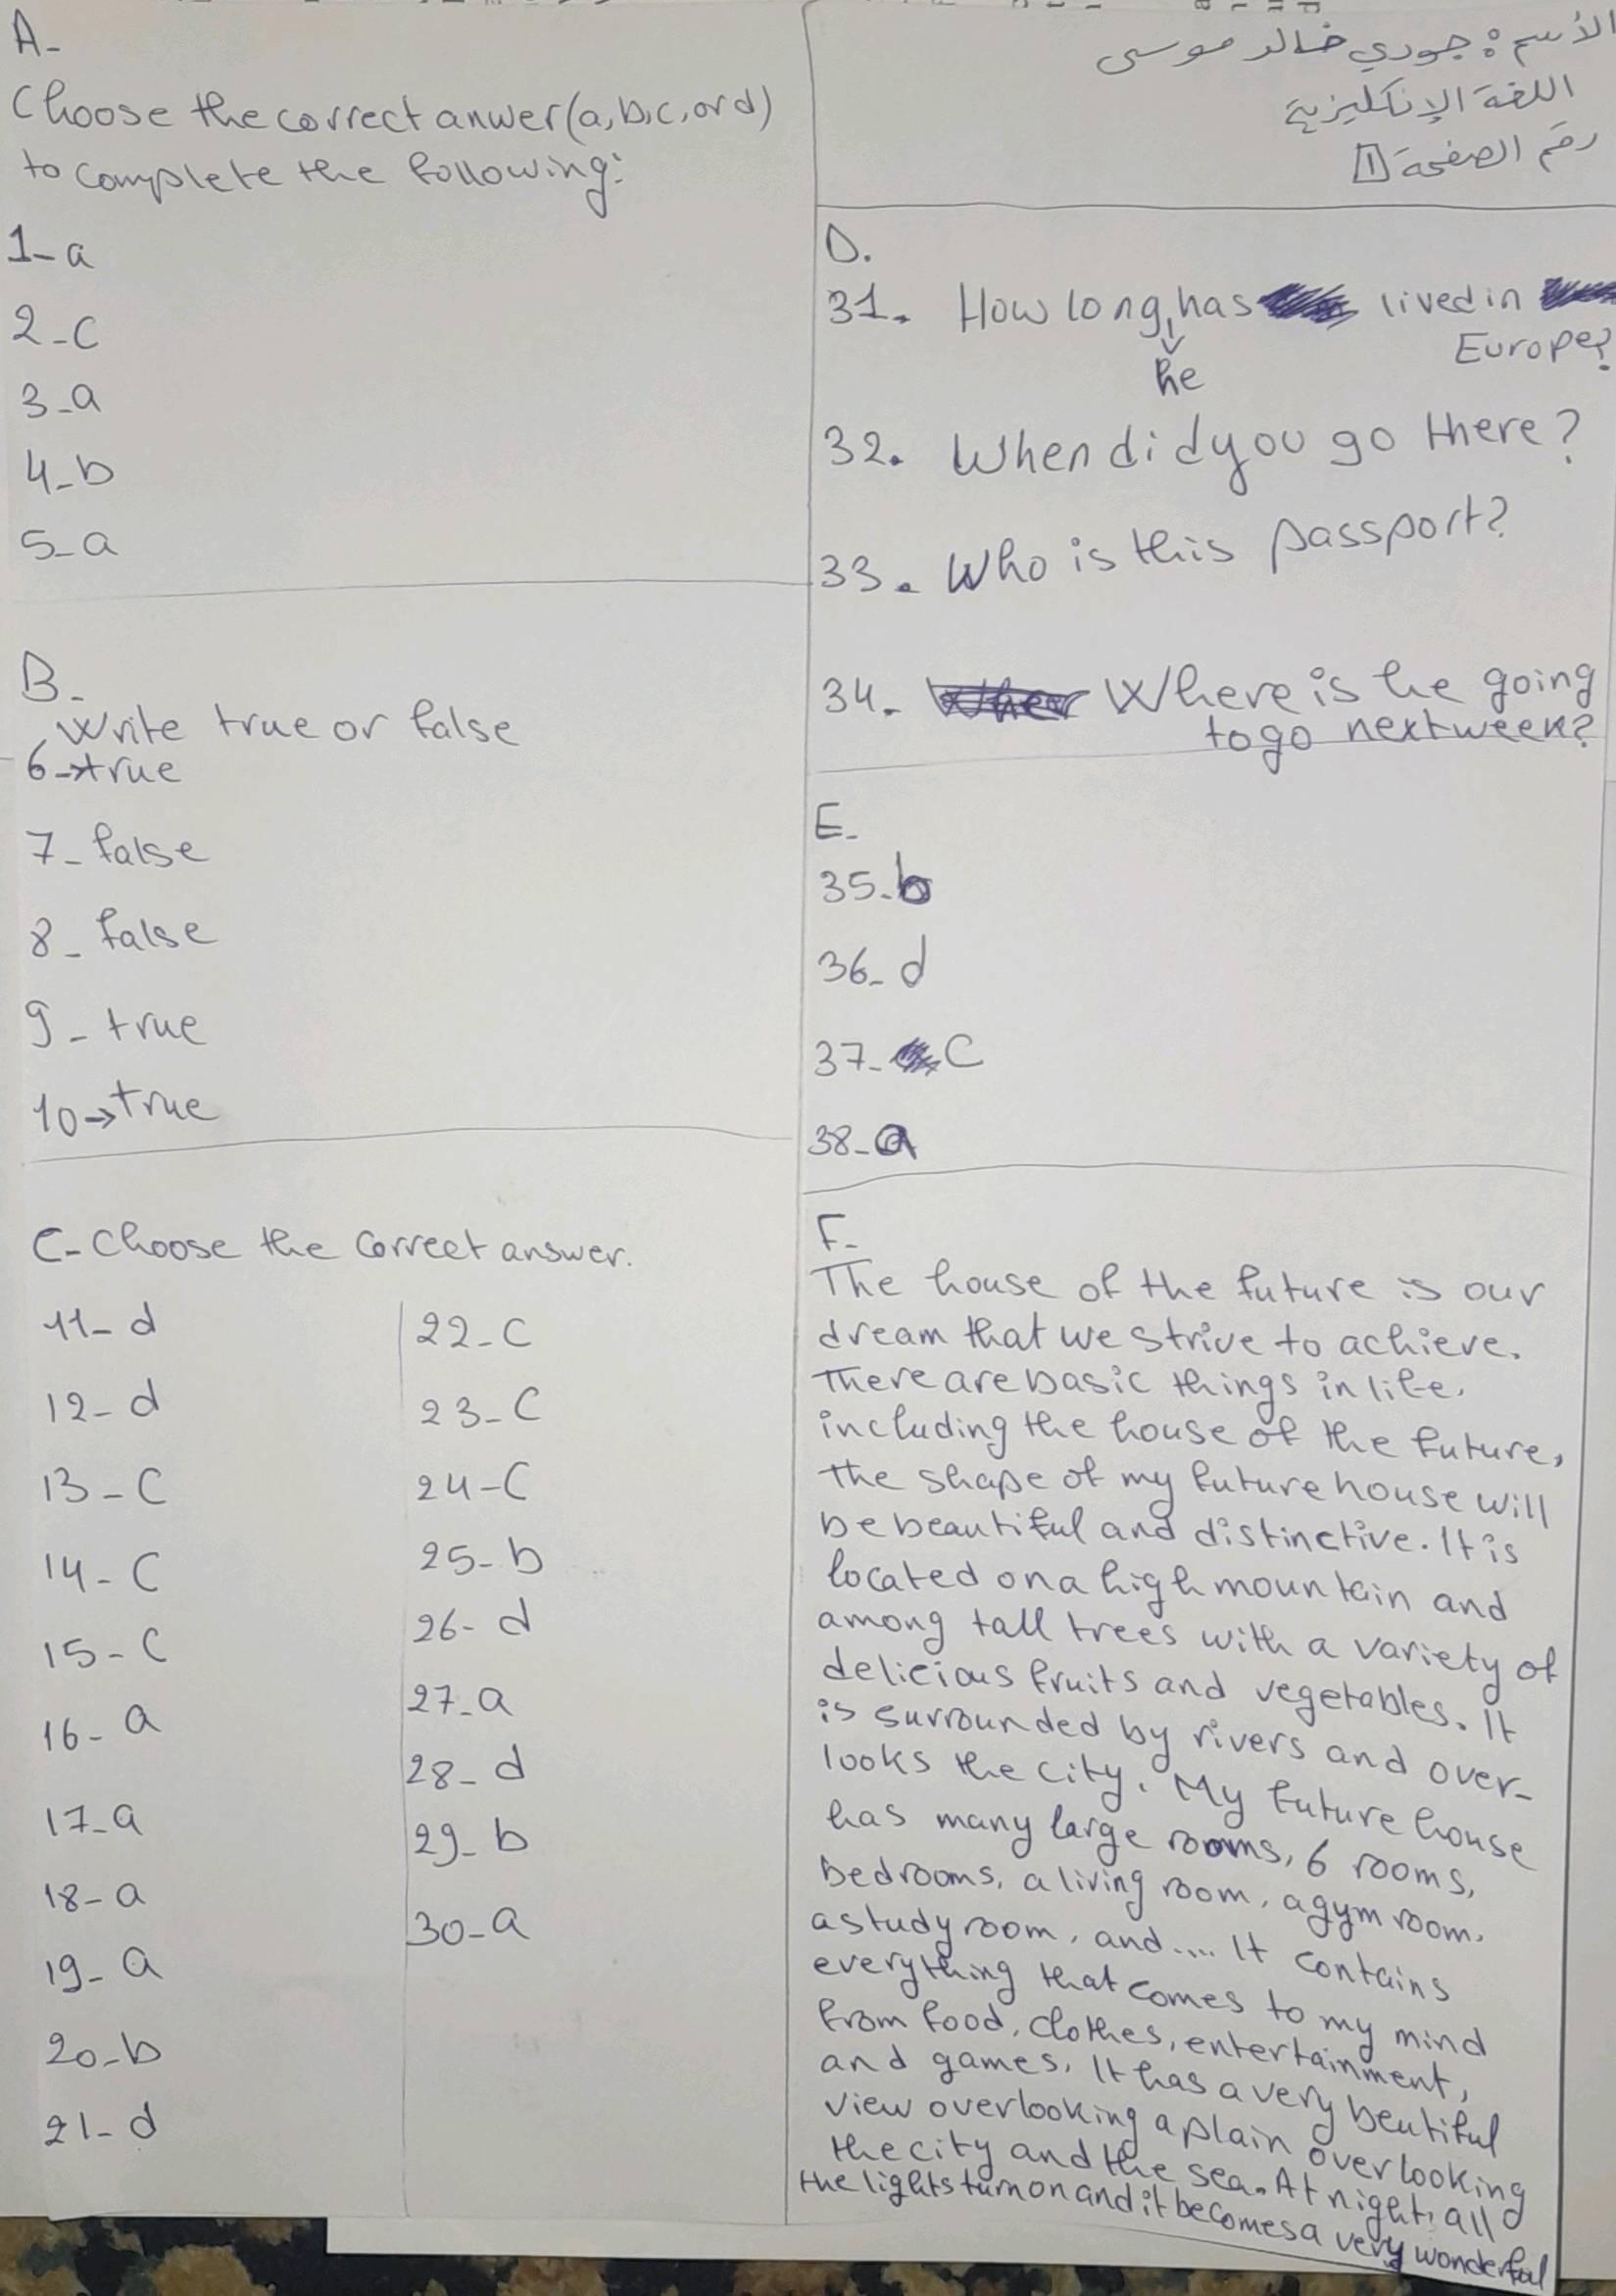 A-
Choose the correct anwer (a,b,c, or d)
to complete the following:
1-a
2-c
3-a
4-b
5-a
B-
Write true or false
6→true
7-false
8-false
9-true
10→true
C-Choose the correct answer.
11-d
12-d
13-C
14-C
15-C
16-a
17-a
18-a
19-a
20-b
21-d
22-C
23-C
24-C
25-b
26-d
27-a
28-d
29-b
30-a
الأسم: جودي خالد موسى
اللغة الإنكليزية
رقم الصفحة ١
D.
31. How long, has lived in
Europe?
he
32. When did you go there?
33. Who is this passport?
34. Where is he going
to go next week?
E-
35-b
36-d
37-C
38-a
F-
The house of the future is our
dream that we strive to achieve.
There are basic things in life.
including the house of the future,
the shape of my future house will
be beautiful and distinctive. It is
located on a high mountain and
among tall trees with a variety of
delicious fruits and vegetables. It
is surrounded by rivers and over-
looks the city. My future house
has many large rooms, 6 rooms,
bedrooms, a living room, a gym room,
a study room, and.... It contains
everything that comes to my mind
from food, clothes, entertainment,
and games. It has a very beutiful
view overlooking a plain overlooking
the city and the sea. At night, all
the lights turn on and it becomes a very wonderful